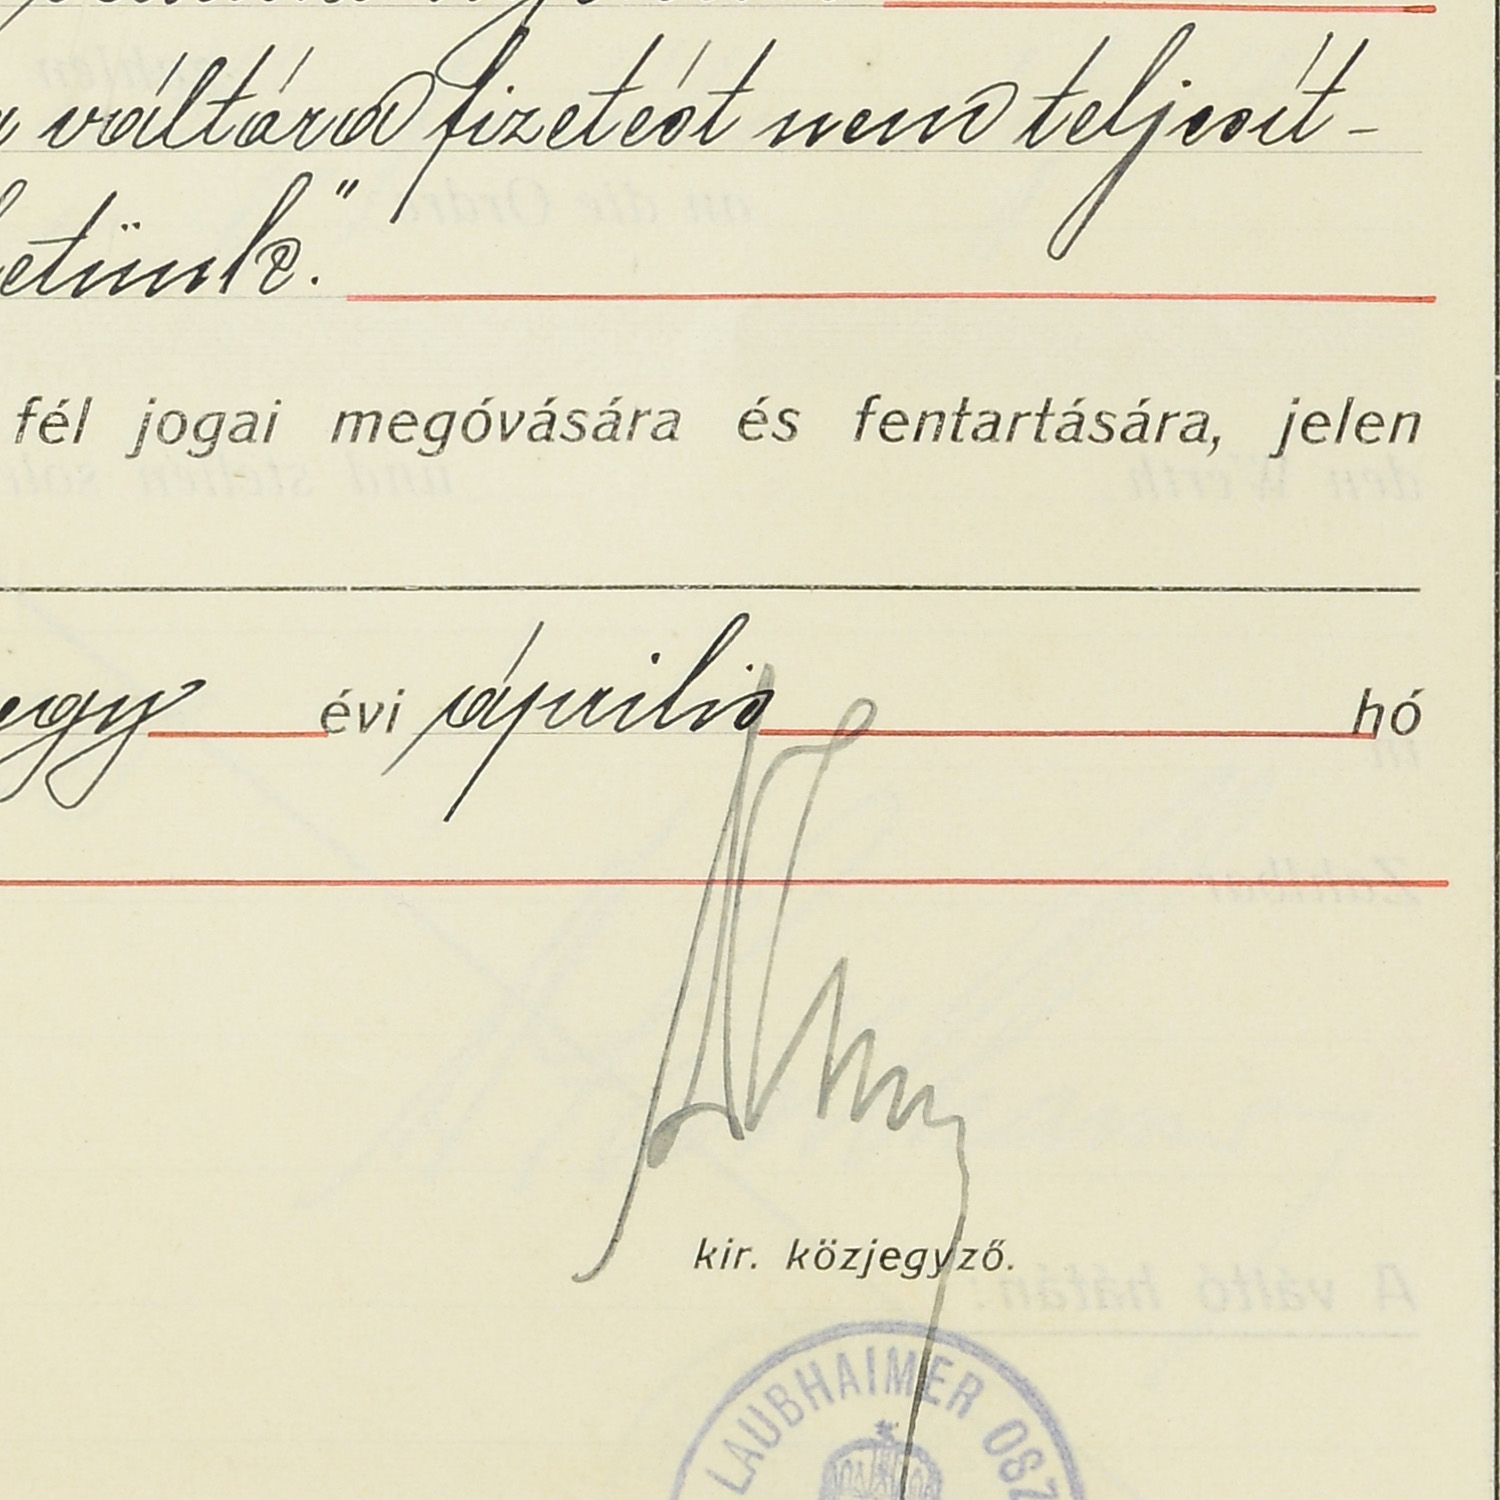 váltóra fizetést nem teljesít-
hetünk."
fél jogai megóvására és fentartására, jelen
egy évi április hó
kir. közjegyző.
LAUBHAIMER OSZ
A váltó hátán: